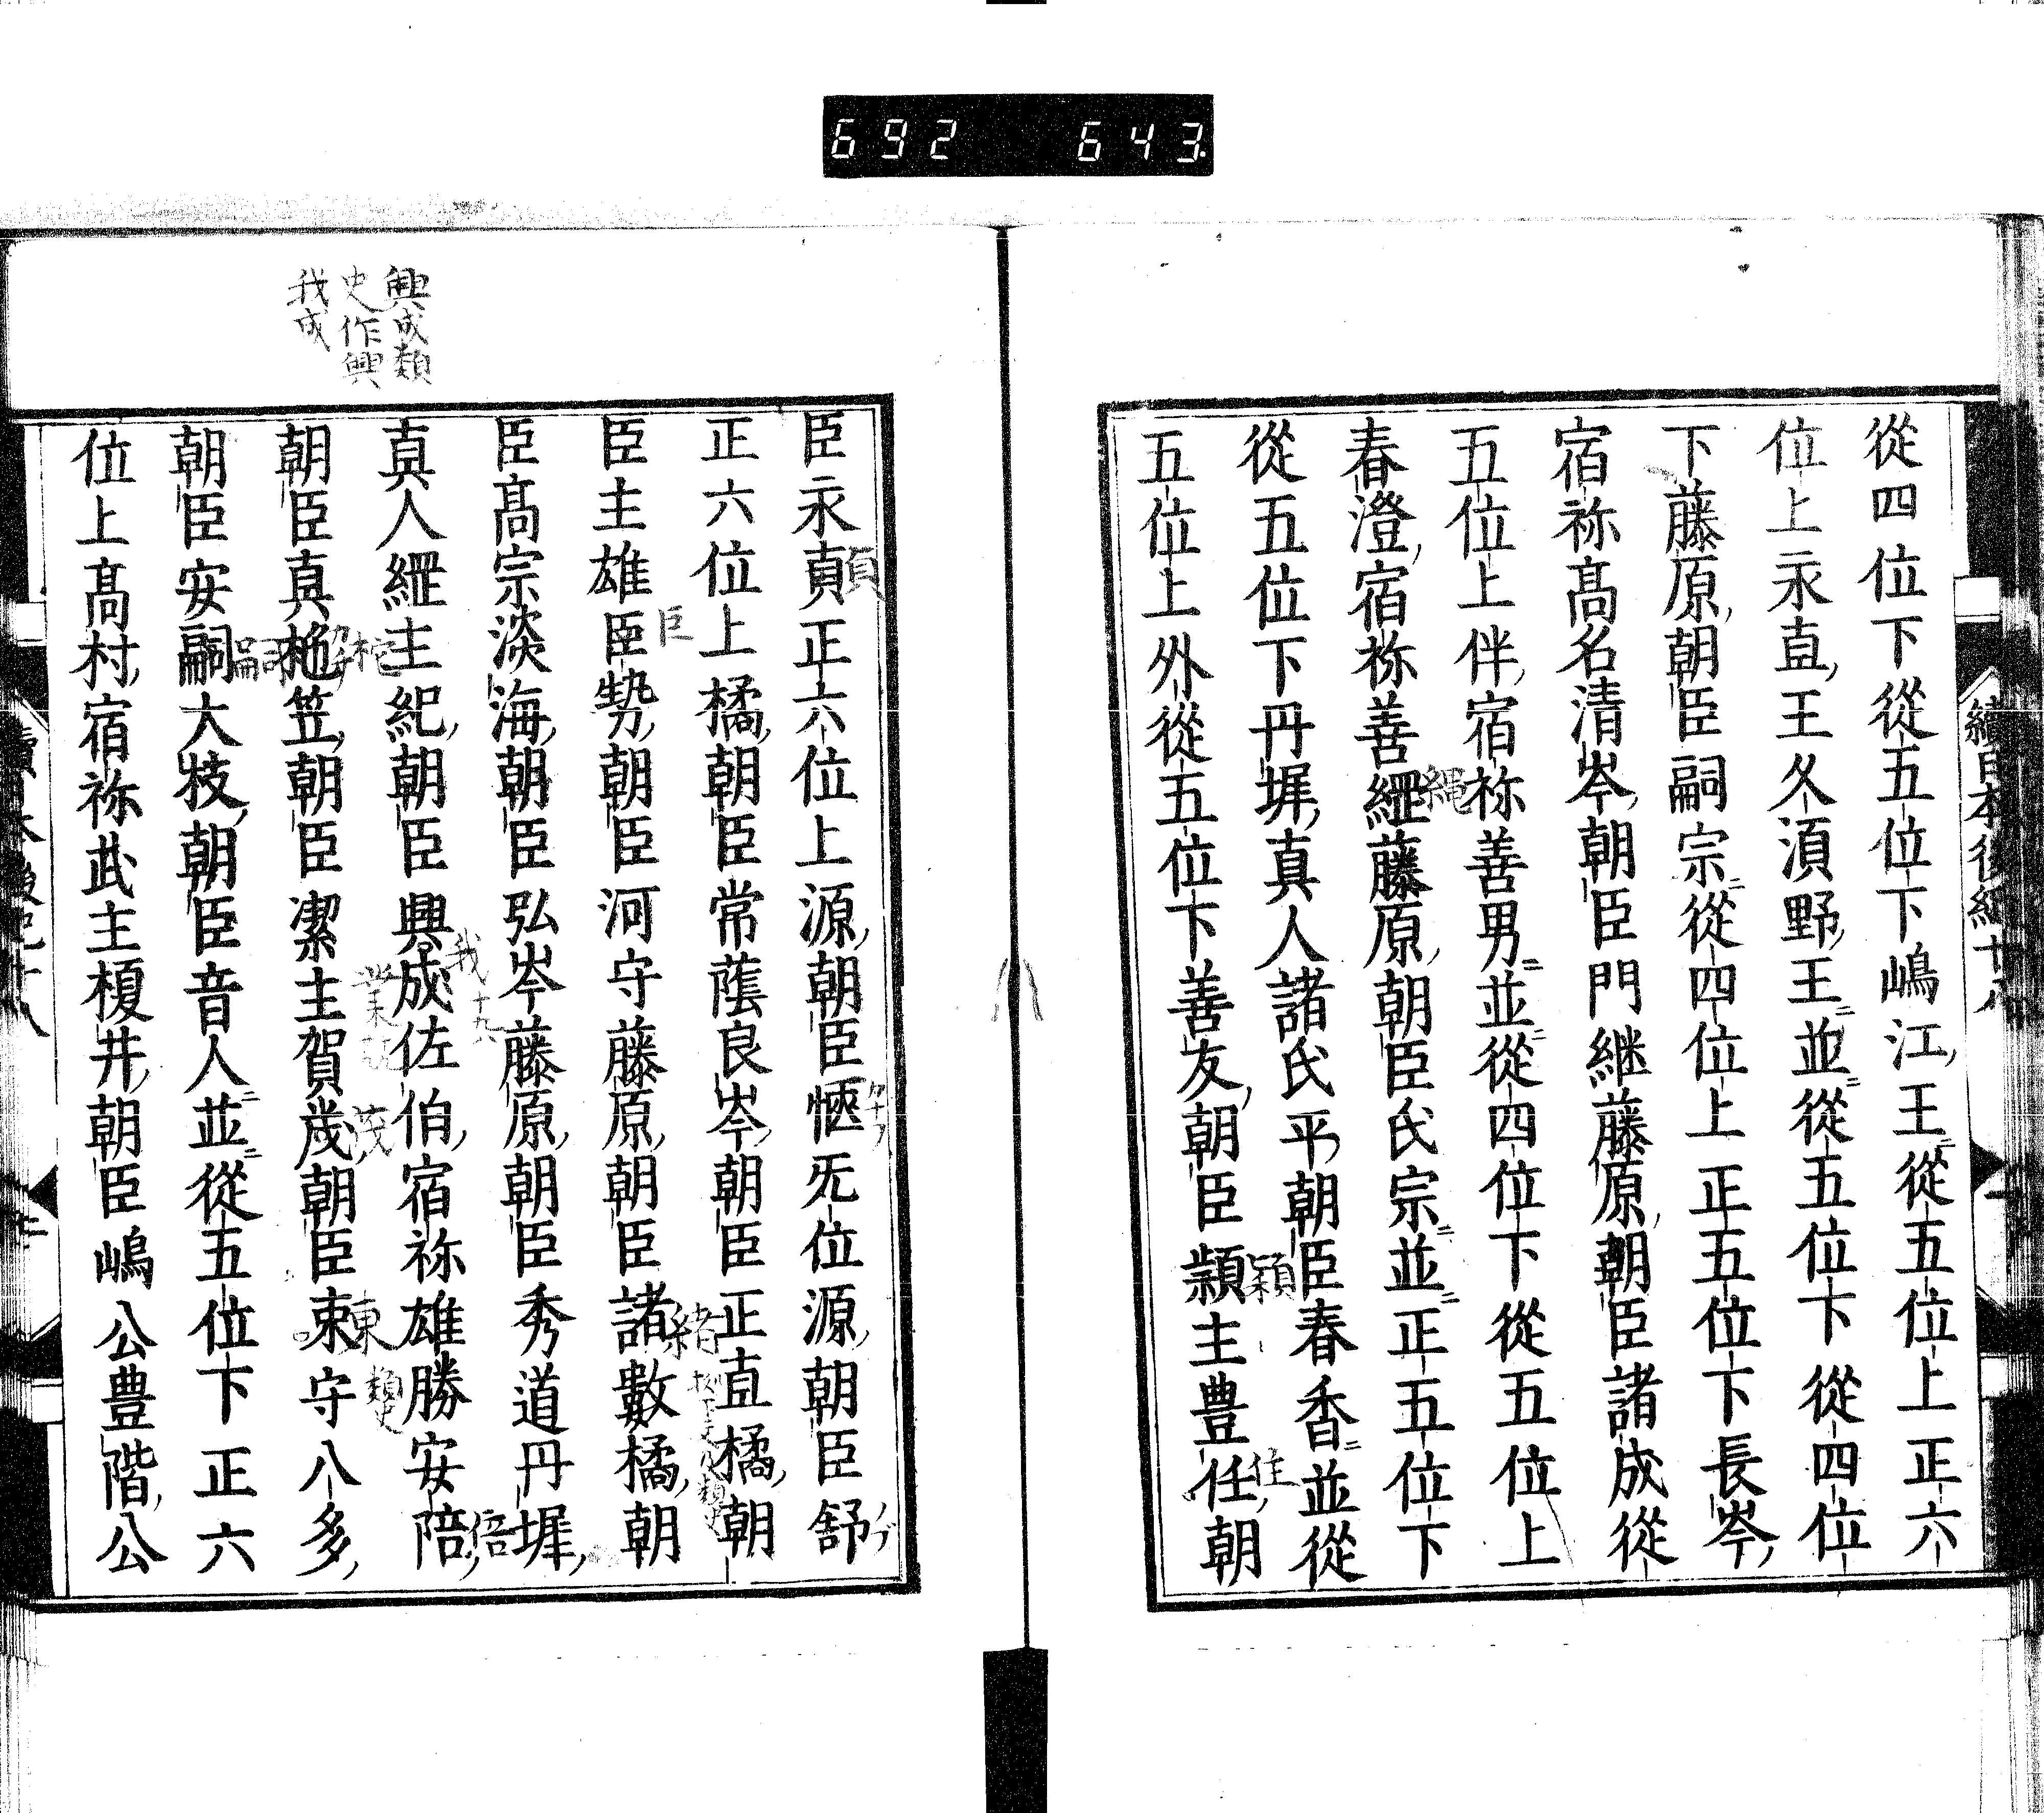 692 643
從四位下從五位下嶋江王從五位上正六
位上永直王久須野王並從五位下從四位
下藤原朝臣嗣宗從四位上正五位下長岑
宿祢髙名清岑朝臣門継藤原朝臣諸成從
五位上伴宿祢善男並從四位下從五位上
春澄宿祢善繩藤原朝臣氏宗並正五位下
繩
從五位下丹墀真人諸氏平朝臣春香並從
五位上外從五位下善友朝臣頴主豊任朝
穎
住
臣永貞正六位上源朝臣愜旡位源朝臣舒
正六位上橘朝臣常蔭良岑朝臣正直橘朝
臣主雄臣勢朝臣河守藤原朝臣諸數橘朝
巨
緒
臣髙宗淡海朝臣弘岑藤原朝臣秀道丹墀
真人繩主紀朝臣興成佐伯宿祢雄勝安陪
我
倍
朝臣真柂笠朝臣潔主賀茂朝臣束守八多
茂
東 類史
朝臣安嗣大枝朝臣音人並從五位下正六
嗣
位上髙村宿祢武主榎井朝臣嶋公豊階公
興成類
史作興
我成